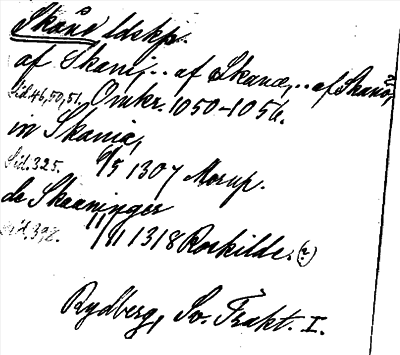 Skåne ldskp.
af Skanej... af Skanæ,.. af Skanø,
Sid. 46, 50, 51. Omkr. 1050-1056.
in Skania,
Sid. 325. 6/5 1307 Morup.
de Skaaninger
Sid. 392. 11/11 1318 Roskilde. (2)
Rydberg, Sv. Trakt. I.